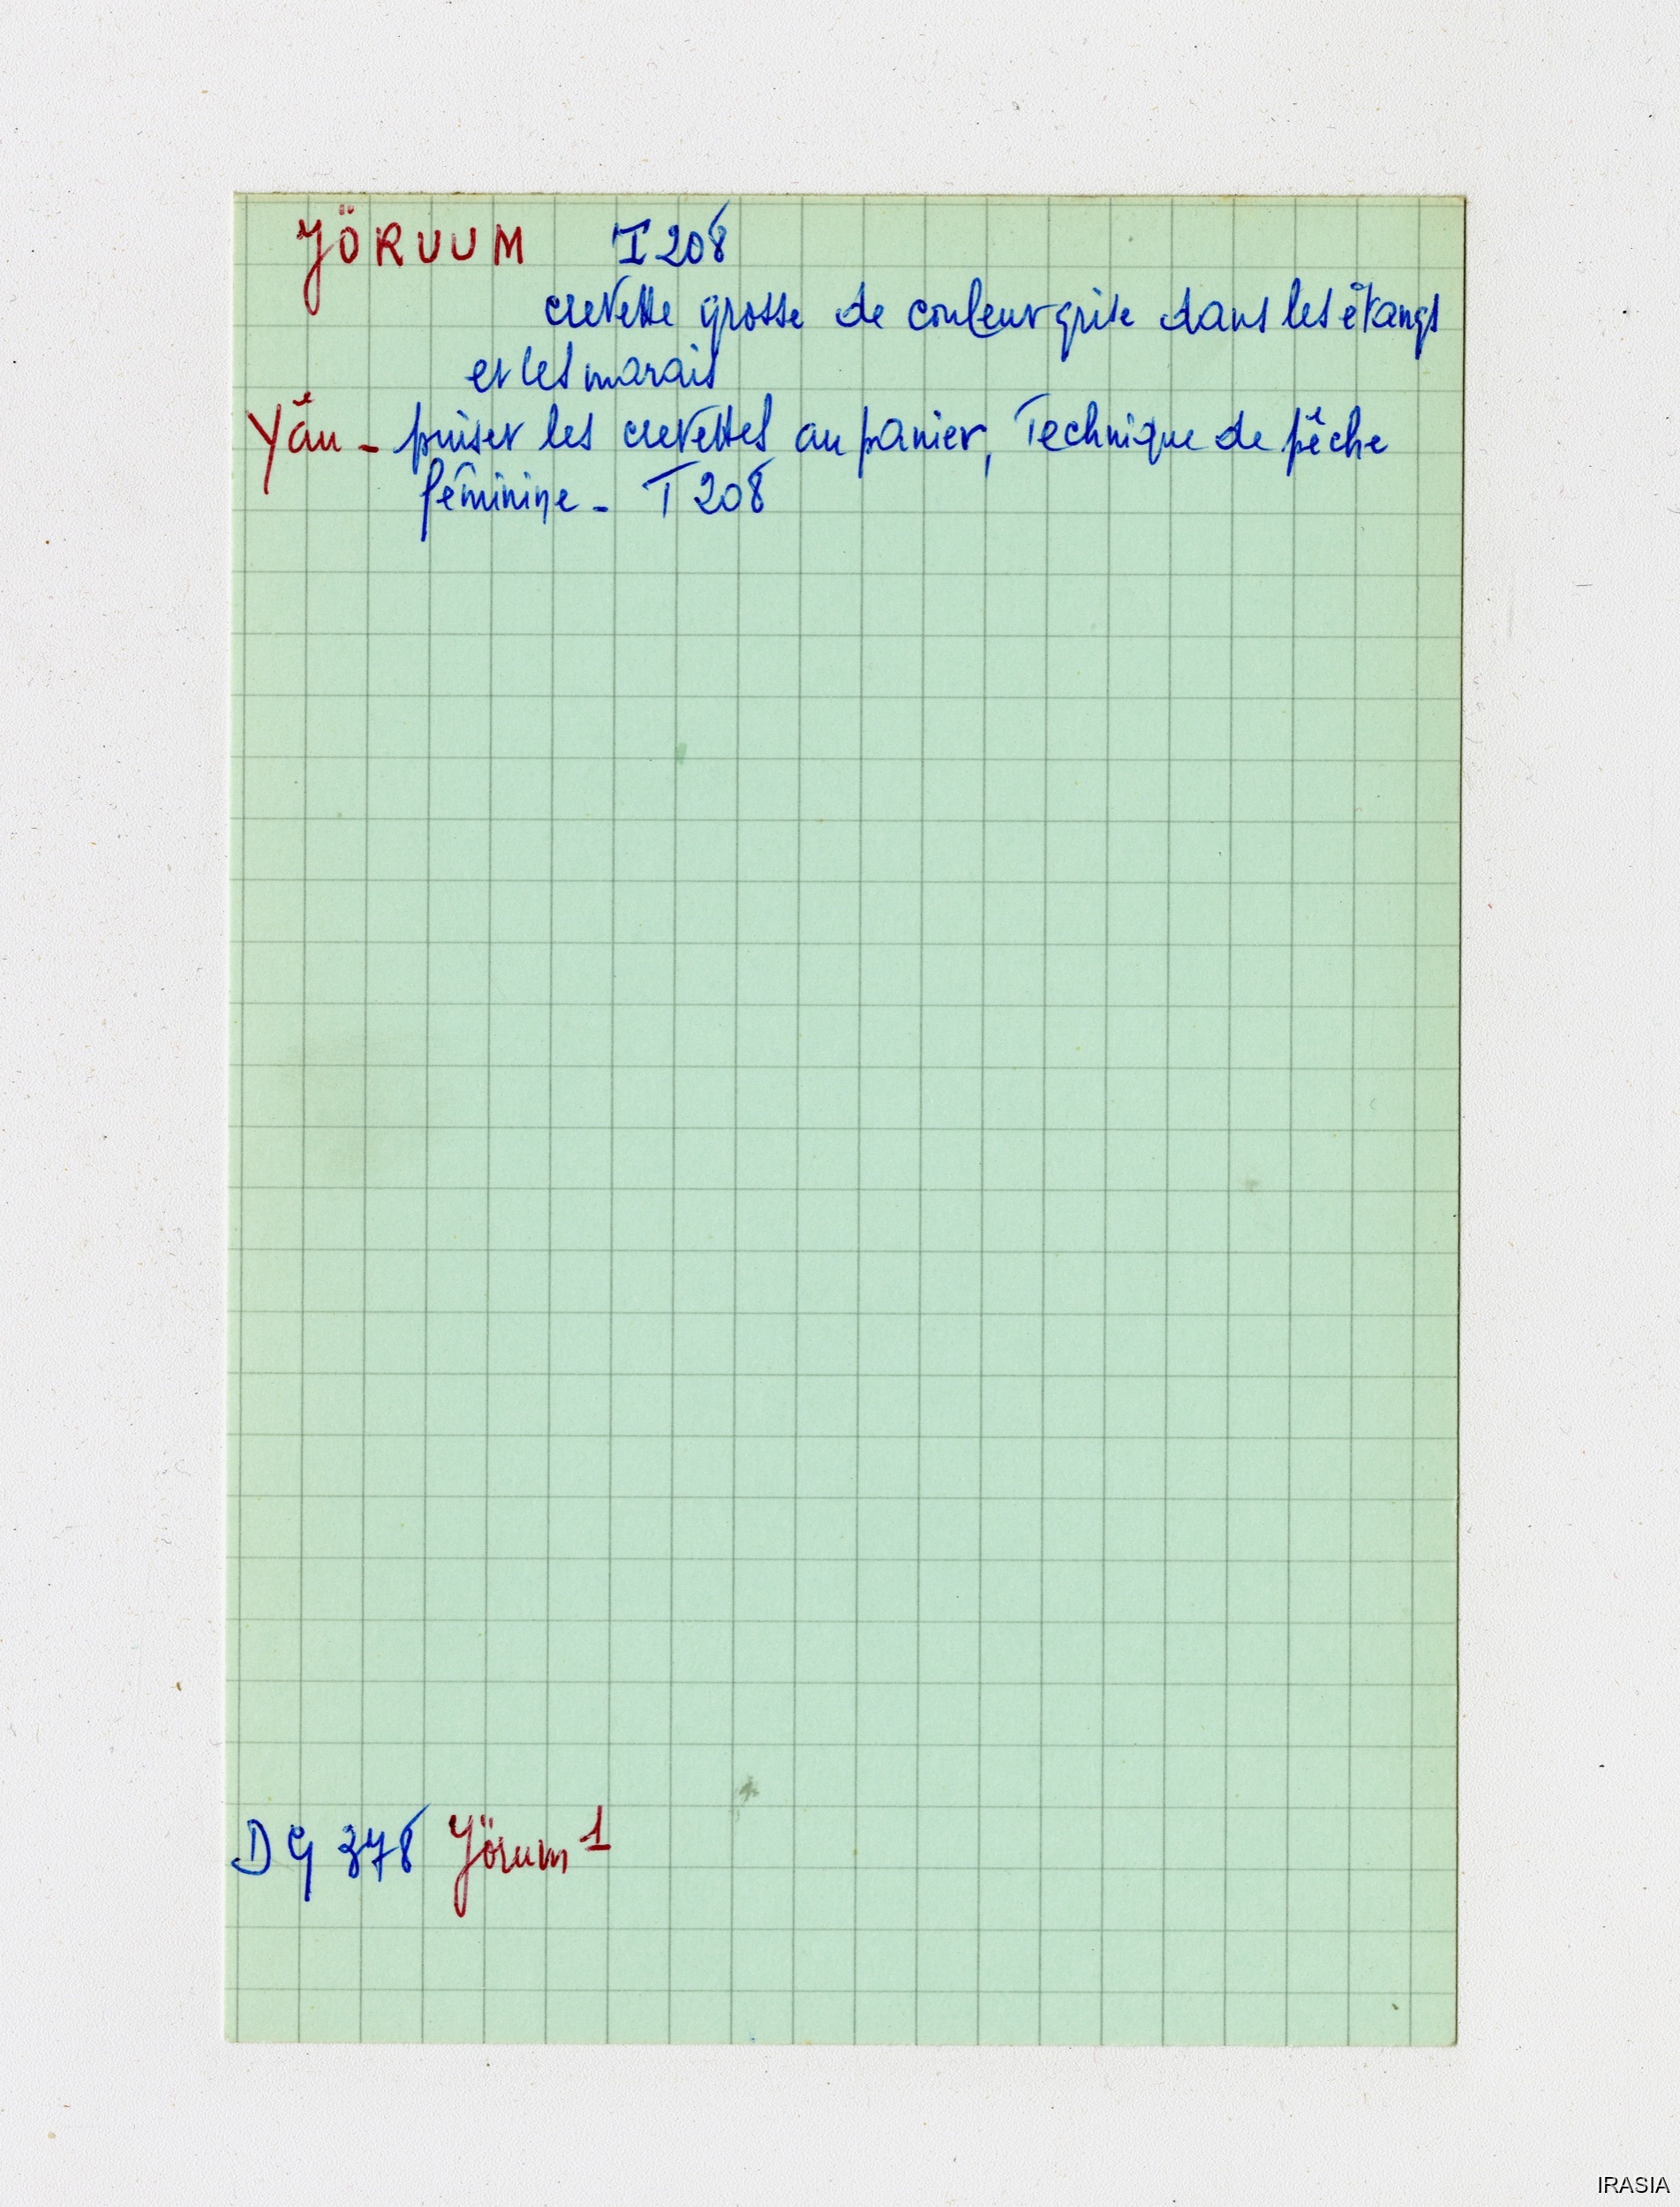 YÖRUUM I 208
crevette grosse de couleur grise dans les étangs
et les marais
Yâu - puiser les crevettes au panier, Technique de pêche
féminine - T 208
DG 378 Yörum 1
IRASIA